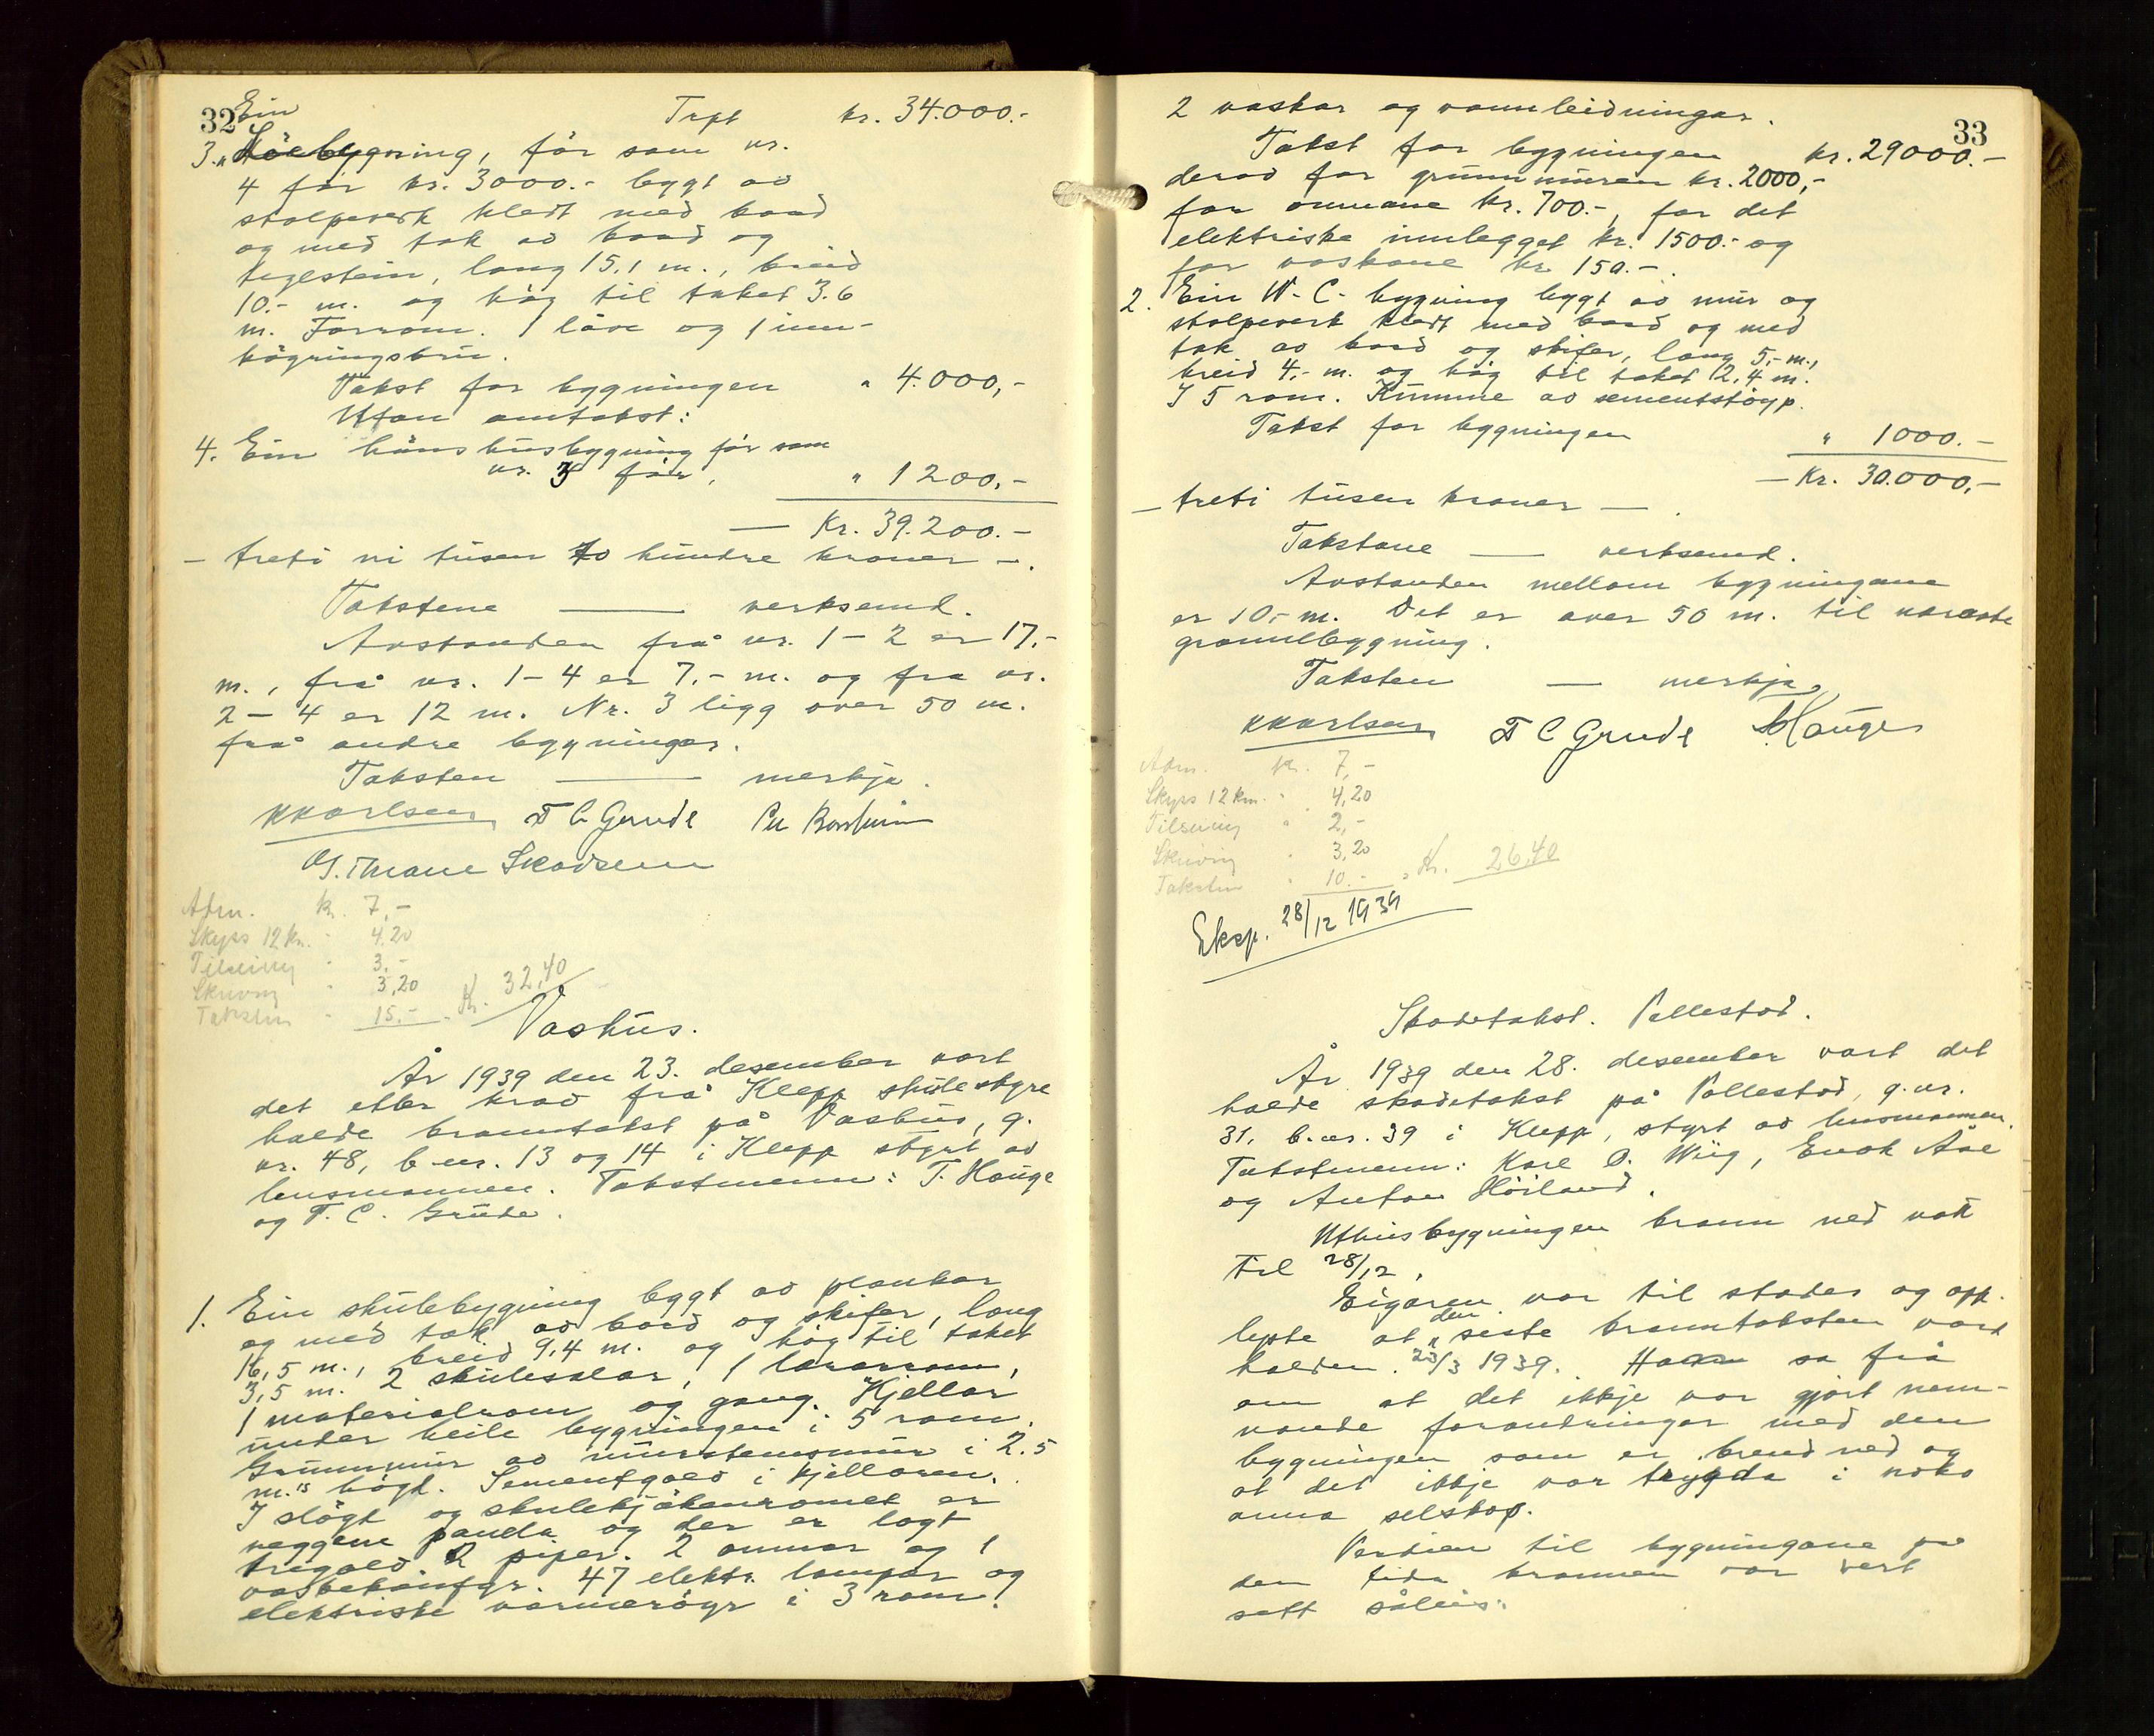 32
Ein
Trpt kr. 34.000.-
3. Löebygning, før som nr.
4 før kr. 3000.- bygt av
stolpeverk kledt med bord
og med tak av bord og
teglstein, lang 15,1 m., breid
10.- m. og høg til taket 3.6
m. Forrom. 1 låve og 1 inn-
køyringsbru.
Takst for bygningen " 4.000,-
Utan omtakst:
4. Ein hönshusbygning før som
nr. 3 før. " 1200,-
— Kr. 39.200.-
- treti ni tusen to hundre kroner -.
Takstene — verksemd.
Avstanden frå nr. 1-2 er 17.-
m., frå nr. 1-4 er 7.- m. og fra nr.
2-4 er 12 m. Nr. 3 ligg over 50 m.
frå andre bygningar.
Taksten — merkja.
KKarlsen T C Grude
G. Thrane Skadsem
Adm. kr. 7,-
Skyss 12 km. " 4,20
Tilsening " 3.-
Skriving " 3,20
Takstm " 15.- . Kr. 32,40
Vashus.
År 1939 den 23. desember vart
det etter krav frå Klepp skulestyre
halde branntakst på Vashus, g.
nr. 48, b.nr. 13 og 14 i Klepp styrt av
lensmannen. Takstmenn: T. Hauge
og T. C. Grude.
1. Ein skulebygning bygt av plankar
og med tak av bord og skifer, lang
16,5 m., breid 9,4 m. og høg til taket
3,5 m. 2 skulesalar, 1 lærarrom,
1 materialrom og gang. Kjellar
under heile bygningen i 5 rom.
Grunnmur av mursteinsmur i 2.5
m.'s høgd. Sementgolv i kjellaren.
I slögt og skulekjøkenromet er
veggene panela og der er lagt
tregolv. 2 piper. 2 omnar og 1
vaskekomfyr. 47 elektr. lampar og
elektriske varmerøyr i 3 rom.
33
2 vaskar og vannleidningar.
Takst for bygningen kr. 29000.-
derav for grunnmuren kr. 2000,-
for omnane kr. 700.-, for det
elektriske innlegget kr. 1500.- og
for vaskane kr. 150.-.
2. Ein W.C.-bygning bygt av mur og
stolpeverk kledt med bord og med
tak av bord og skifer, lang 5,- m.,
breid 4,- m. og høg til taket 2,4 m.
I 5 rom. Kumme av sementstøyp.
Takst for bygningen " 1000.-
— Kr. 30.000,-
- treti tusen kroner — .
Takstane — verksemd.
Avstanden mellom bygningane
er 10,- m. Det er over 50 m. til næraste
grannebygning.
Taksten — merkja.
KKarlsen T C Grude Hauge
Adm. kr. 7,-
Skyss 12 km. " 4,20
Tilsening " 2,-
Skriving " 3,20
Takstm " 10.- , Kr. 26,40
Eksp. 28/12 1939
Skadetakst. Pollestad.
År 1939 den 28. desember vart det
halde skadetakst på Pollestad, g.nr.
31, b.nr. 39 i Klepp, styrt av lensmannen.
Takstmenn: Karl O. Wiig, Enok Åse
og Anton Höiland.
Uthusbygningen brann ned natt
til 28/12.
Eigaren var til stades og opp-
lyste at den seste branntaksten vart
halden 23/3 1939. Han sa frå
om at det ikkje var gjort nem-
nande forandringar med den
bygningen som er brend ned og
at det ikkje var trygda i noko
anna selskap.
Verdien til bygningane på
den tida brannen var vert
sett såleis: